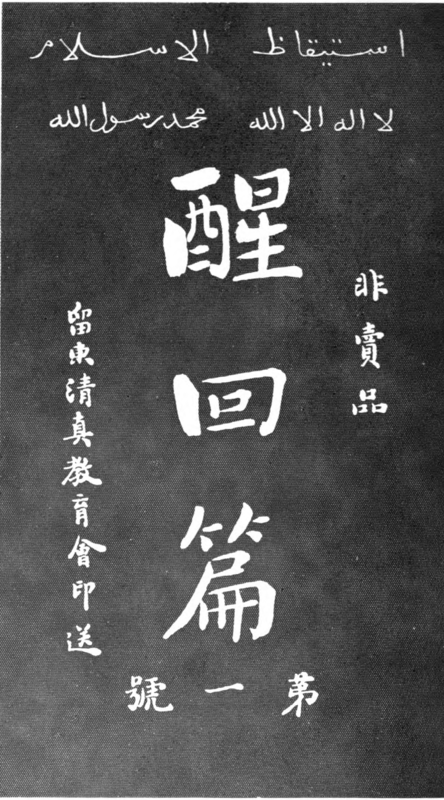 استيقاظ الاسلام
لا اله الا الله محمد رسول الله
非賣品
醒回篇
第一號
留東清真教育會印送